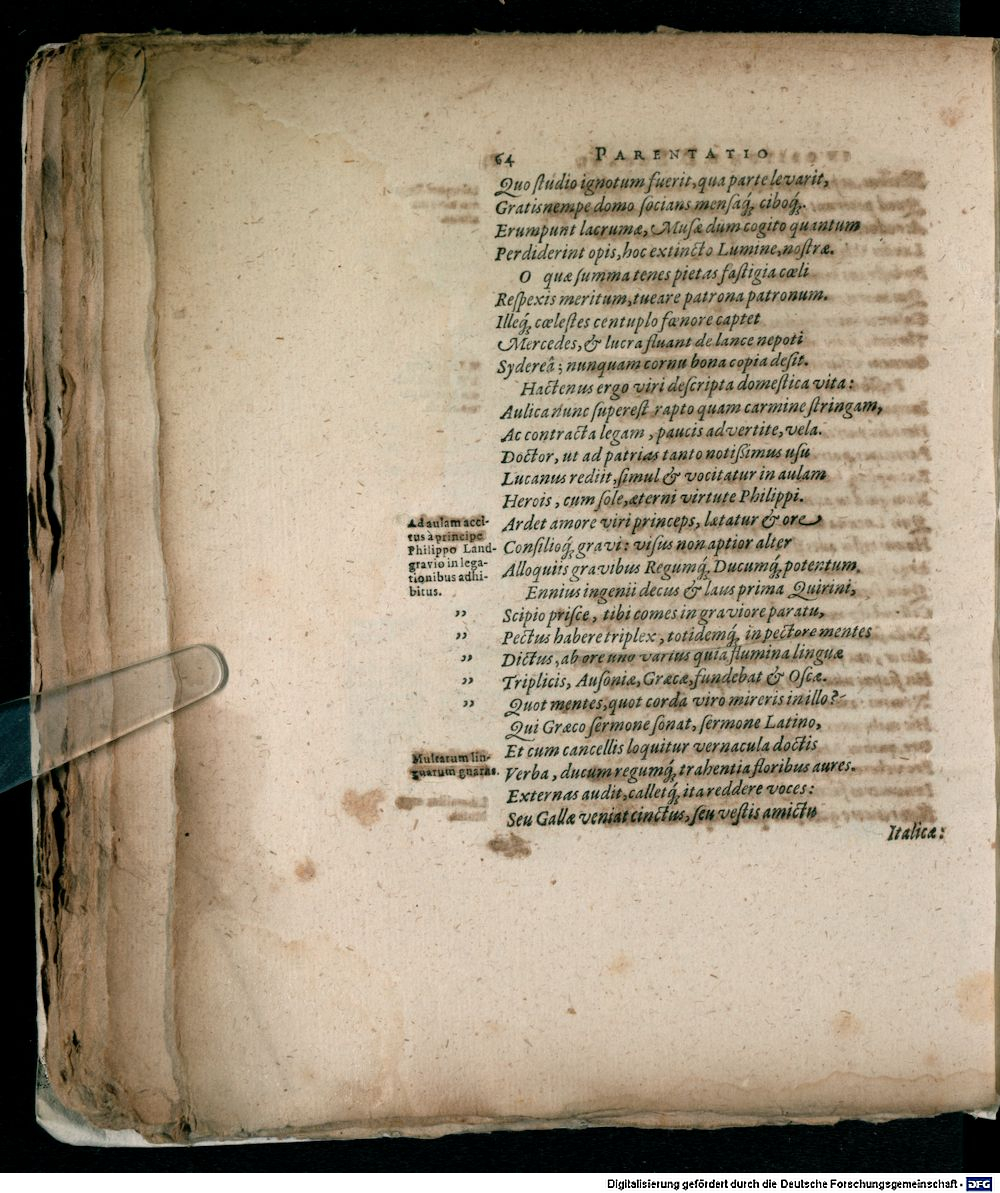 64 PARENTATIO
Quo ſtudio ignotum fuerit, qua parte levarit,
Gratis nempe domo ſocians menſaq́; ciboq́;.
Erumpunt lacrumæ, Muſæ dum cogito quantum
Perdiderint opis, hoc extincto Lumine, noſtræ.
O quæ ſumma tenes pietas faſtigia cœli
Reſpexis meritum, tueare patrona patronum.
Illeq́; cœleſtes centuplo fœnore captet
Mercedes, & lucra fluant de lance nepoti
Sydereâ; nunquam cornu bona copia deſit.
Hactenus ergo viri deſcripta domeſtica vita:
Aulica nunc ſupereſt rapto quam carmine ſtringam,
Ac contracta legam, paucis advertite, vela.
Doctor, ut ad patrias tanto notißimus uſu
Lucanus rediit, ſimul & vocitatur in aulam
Herois, cum ſole, æterni virtute Philippi.
Ad aulam acci-
tus à principe
Philippo Land-
gravio in lega-
tionibus adhi-
bitus.
Ardet amore viri princeps, lætatur & ore
Conſilioq́; gravi: viſus non aptior alter
Alloquiis gravibus Regumq́; Ducumq́; potentum.
Ennius ingenii decus & laus prima Quirini,
” Scipio priſce, tibi comes in graviore paratu,
” Pectus habere triplex, totidemq́; in pectore mentes
” Dictus, ab ore uno varius quia flumina linguæ
” Triplicis, Auſoniæ, Græcæ, fundebat & Oſcæ.
” Quot mentes, quot corda viro mireris in illo?
Qui Græco ſermone ſonat, ſermone Latino,
Et cum cancellis loquitur vernacula doctis
Multarum lin-
guarum gnarus.
Verba, ducum regumq́; trahentia floribus aures.
Externas audit, calletq́; ita reddere voces:
Seu Gallæ veniat cinctus, ſeu veſtis amictu
Italicæ:
Digitalisierung gefördert durch die Deutsche Forschungsgemeinschaft - DFG